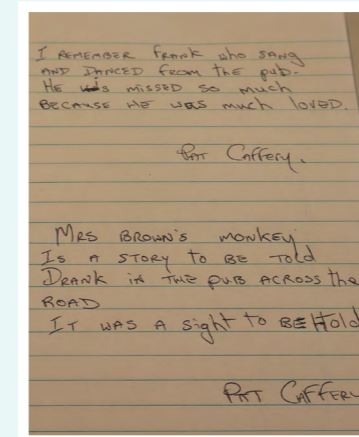 I REMEMBER FRANK who SANG
AND DANCED from the pub.
HE was MISSED SO much
BECAUSE HE was much loved.
PAT Caffery.
MRS BROWN'S MONKEY
IS A STORY to BE Told
DRANK in THE PUB ACROSS the
ROAD
IT WAS A sight to BE Hold
PAT CAFFERY